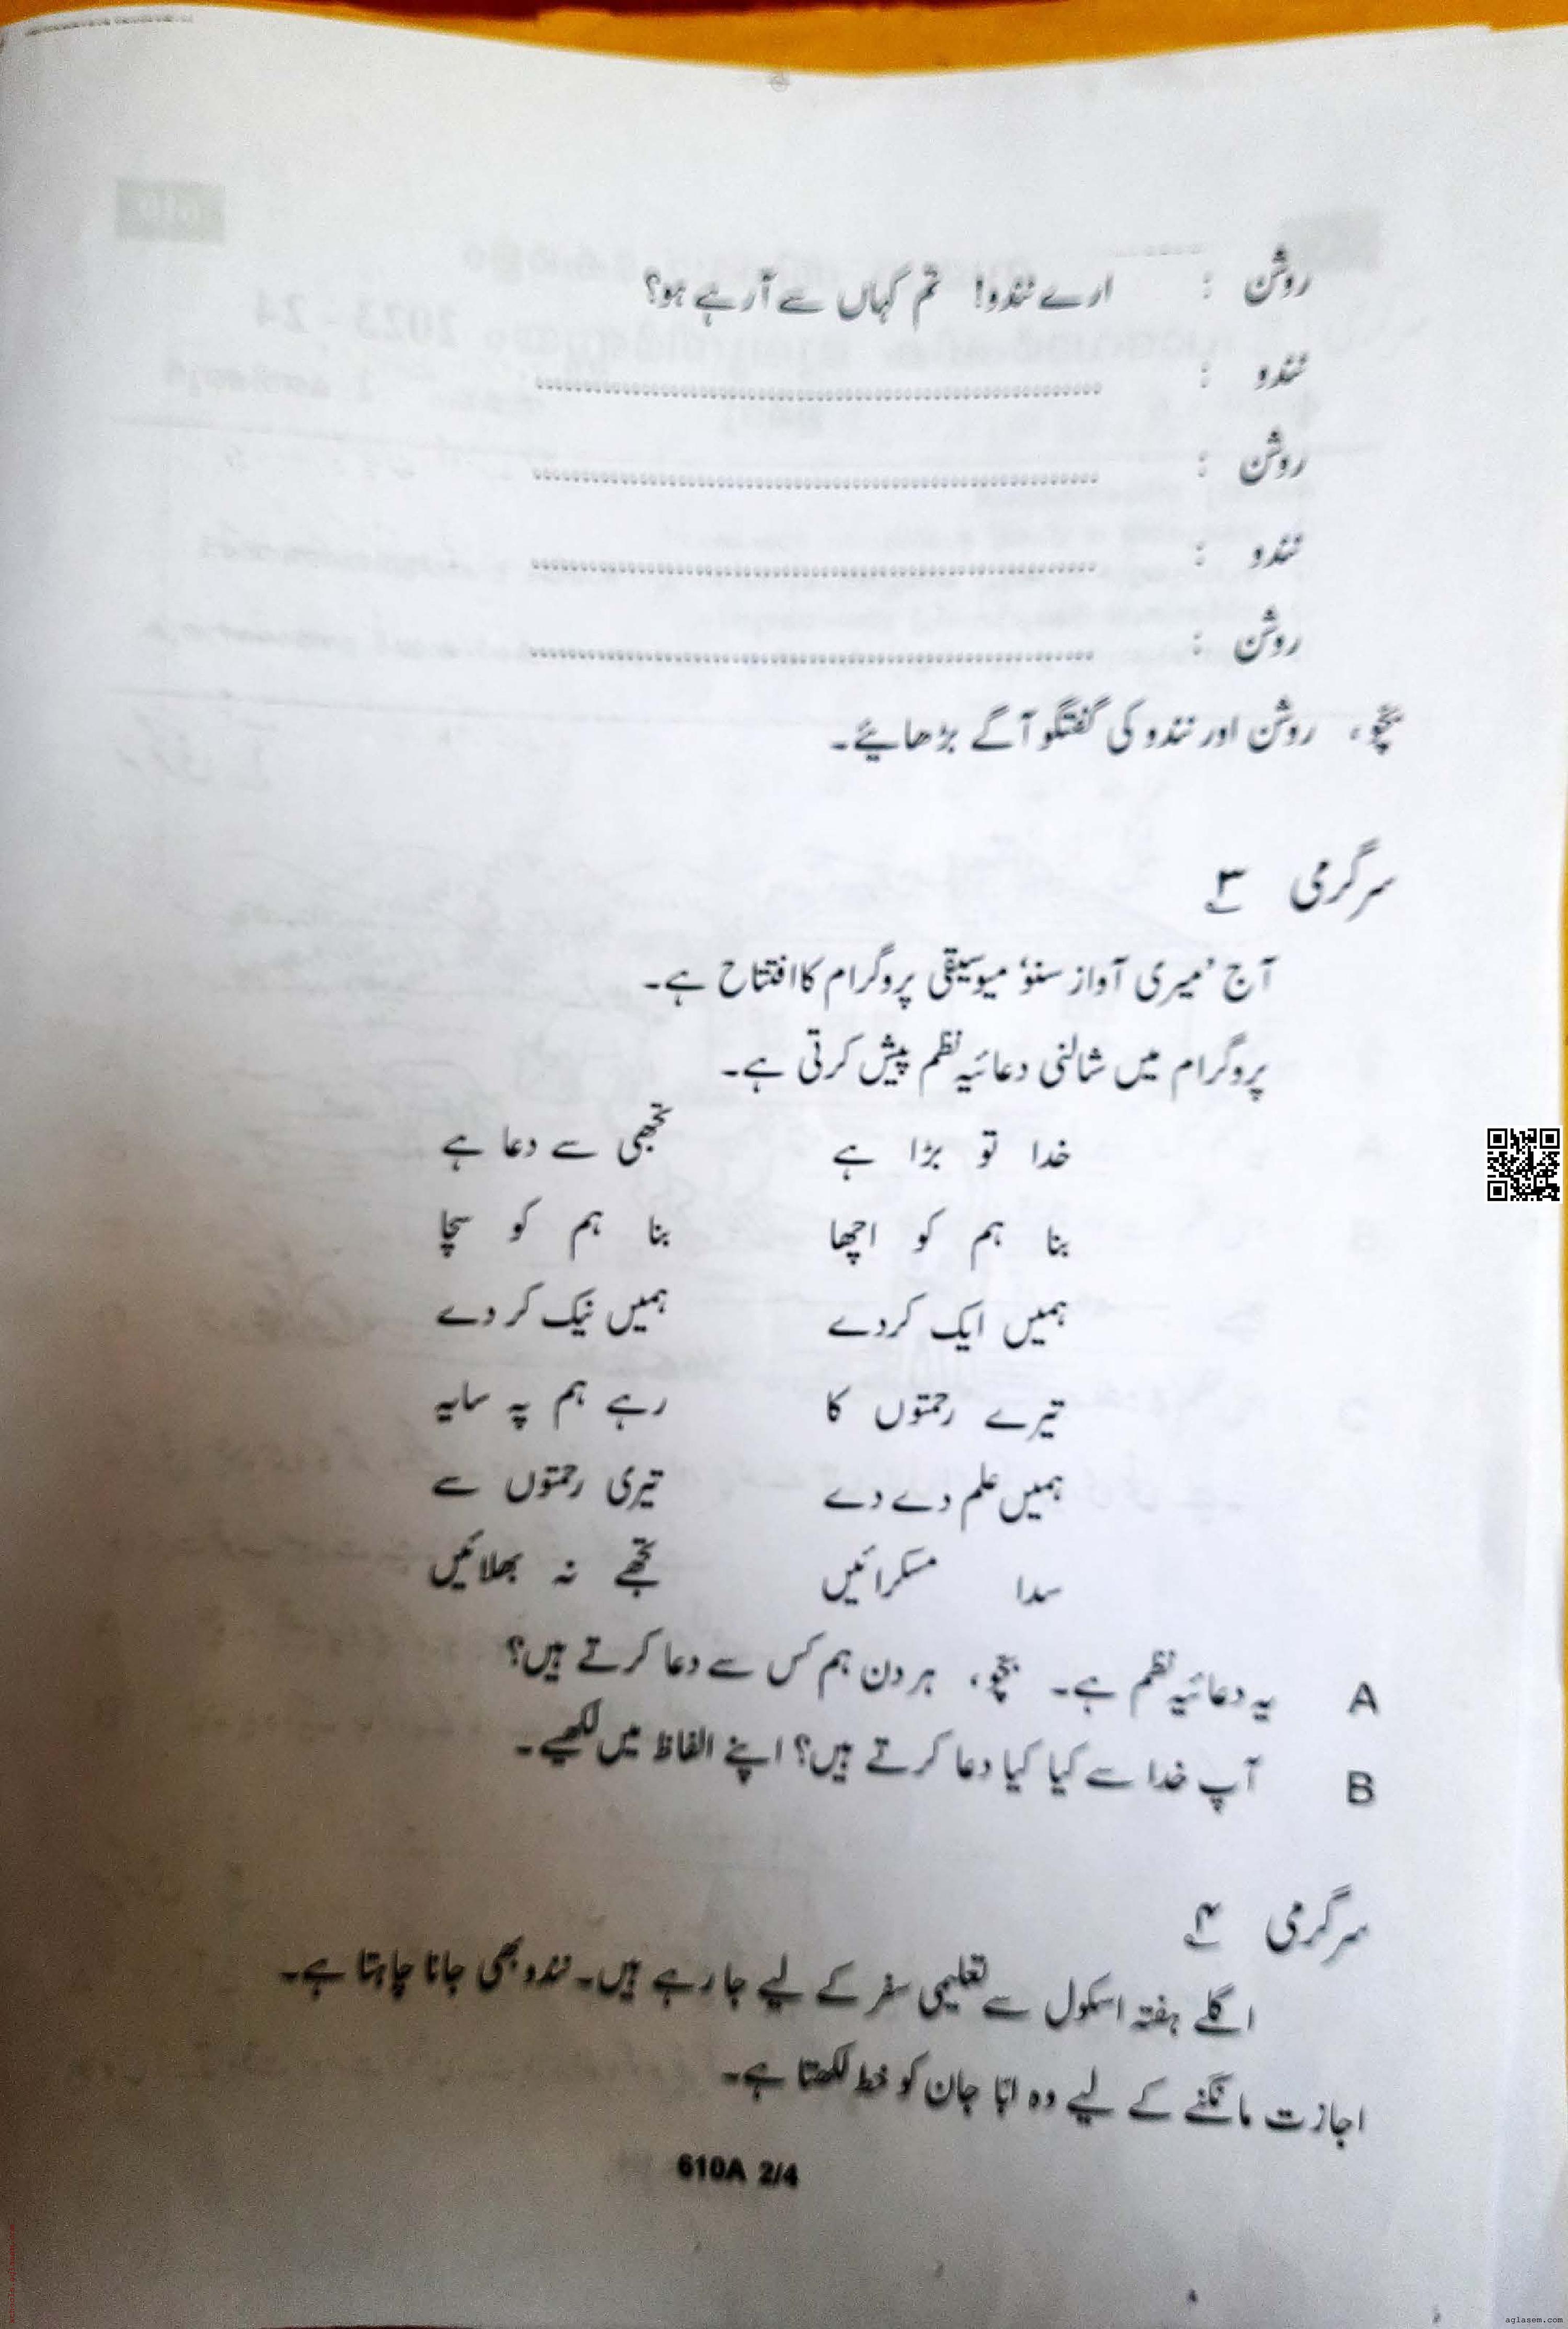 روشن : ارے نندو! تم کہاں سے آرہے ہو؟
نندو : ..............................
روشن : ..............................
نندو : ..............................
روشن : ..............................
بچّو، روشن اور نندو کی گفتگو آگے بڑھایئے۔
سرگرمی ۳
آج ’میری آواز سنو‘ میوسیقی پروگرام کا افتتاح ہے۔
پروگرام میں شالنی دعائیہ نظم پیش کرتی ہے۔
خدا تو بڑا ہے تجھی سے دعا ہے
بنا ہم کو اچھا بنا ہم کو سچا
ہمیں ایک کردے ہمیں نیک کر دے
تیرے رحمتوں کا رہے ہم پہ سایہ
ہمیں علم دے دے تیری رحمتوں سے
سدا مسکرائیں تجھے نہ بھلائیں
A یہ دعائیہ نظم ہے۔ بچّو، ہر دن ہم کس سے دعا کرتے ہیں؟
B آپ خدا سے کیا کیا دعا کرتے ہیں؟ اپنے الفاظ میں لکھیے۔
سرگرمی ۴
اگلے ہفتہ اسکول سے تعلیمی سفر کے لیے جا رہے ہیں۔ نندو بھی جانا چاہتا ہے۔
اجازت مانگنے کے لیے وہ ابّا جان کو خط لکھتا ہے۔
610A 2/4
aglasem.com